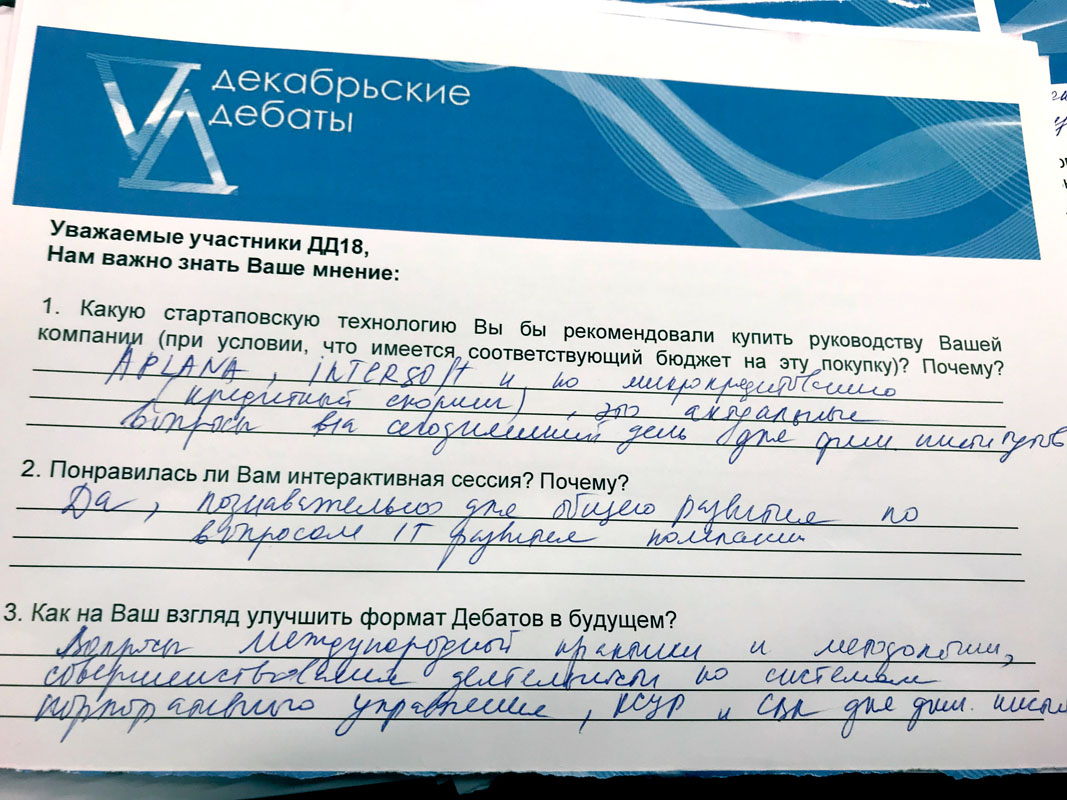 декабрьские
дебаты
Уважаемые участники ДД18,
Нам важно знать Ваше мнение:
1. Какую стартаповскую технологию Вы бы рекомендовали купить руководству Вашей
компании (при условии, что имеется соответствующий бюджет на эту покупку)? Почему?
APLANA, INTERSOFT и по микрокредитованию
(кредитный скоринг), это актуальные
вопросы на сегодняшний день для фин. институтов
2. Понравилась ли Вам интерактивная сессия? Почему?
Да, познавательно для общего развития по
вопросам IT развития компании
3. Как на Ваш взгляд улучшить формат Дебатов в будущем?
Вопросы международной практики и методологии,
совершенствования деятельности по системам
корпоративного управления, КСУР и СВК для фин.